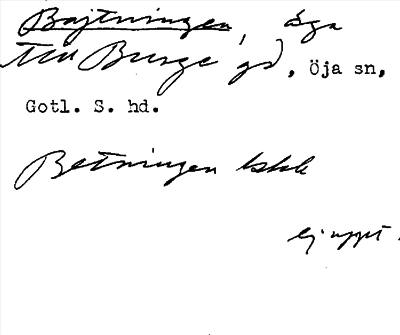 Bajtningen, äga
till Burge gd, Öja sn,
Gotl. S. hd.
Betningen
ej uppt.